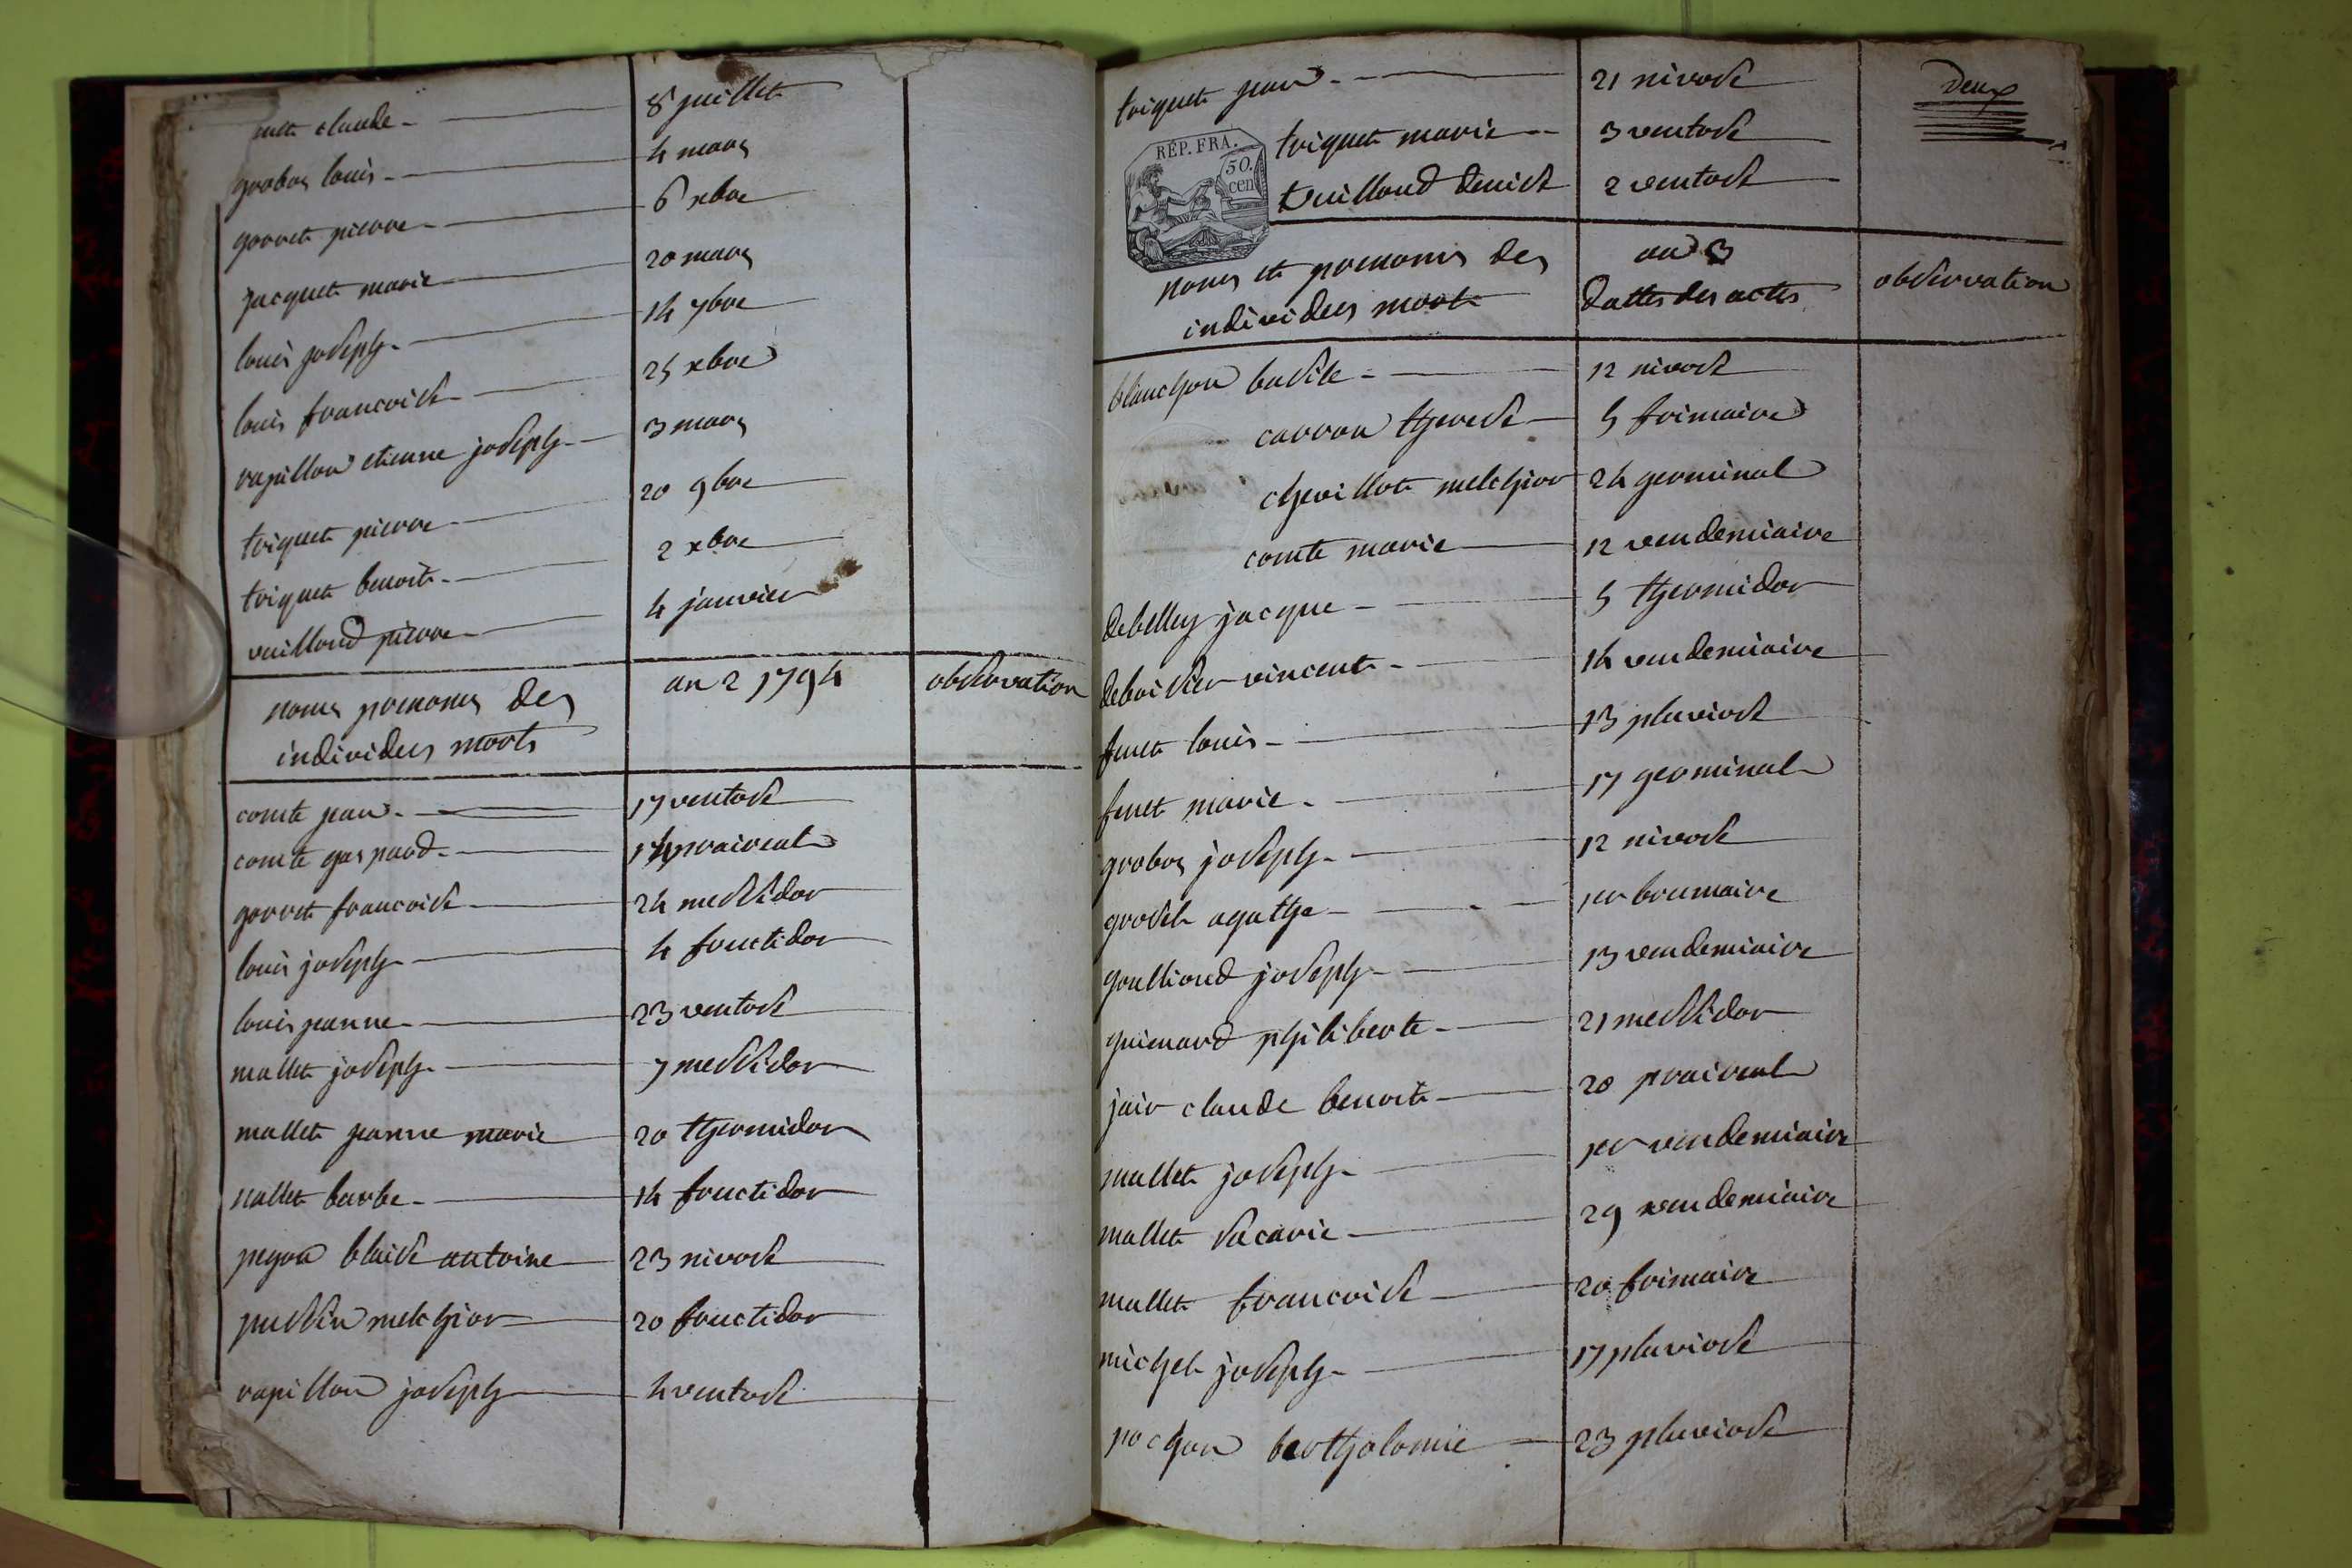 claude 8 juillet
grobos louis 4 mars
gorret pierre 6 xbre
jacquet marie 20 mars
louis joseph 14 7bre
louis francoise 25 xbre
rapillon etienne joseph 3 mars
triquet pierre 20 9bre
triquet benoit 2 xbre
vuilloud pierre 4 janvier
noms prenoms des an 2 1794 observation
individus morts
comte jean 17 ventose
comte gaspard prairial
gorret francoise 24 messidor
louis joseph 4 fructidor
louis jeanne 23 ventose
mallet joseph 7 messidor
mallet jeanne marie 20 thermidor
mallet barbe 14 fructidor
pegon blaise antoine 23 nivose
melchior 20 fructidor
rapillon joseph 4 ventose
triquet jean 21 nivose deux
RÉP. FRA.
50. cen
triquet marie 3 ventose
vuilloud denise 2 ventose
noms et prenoms des an 3
individus morts dattes des actes observation
blanchon basile 12 nivose
carron therese 5 frimaire
chevillot melchior 24 germinal
comte marie 12 vendemiaire
debelley jacque 5 thermidor
deboissier vincent 14 vendemiaire
furet louis 13 pluviose
furet marie 17 germinal
grobos joseph 12 nivose
groset agathe 1er brumaire
joseph 13 vendemiaire
guimard philiberte 21 messidor
jair claude benoit 20 prairial
mallet joseph 1er vendemiaire
mallet sacarie 29 vendemiaire
mallet francoise 20 frimaire
michel joseph 17 pluviose
pochon bartholomie 23 pluviose